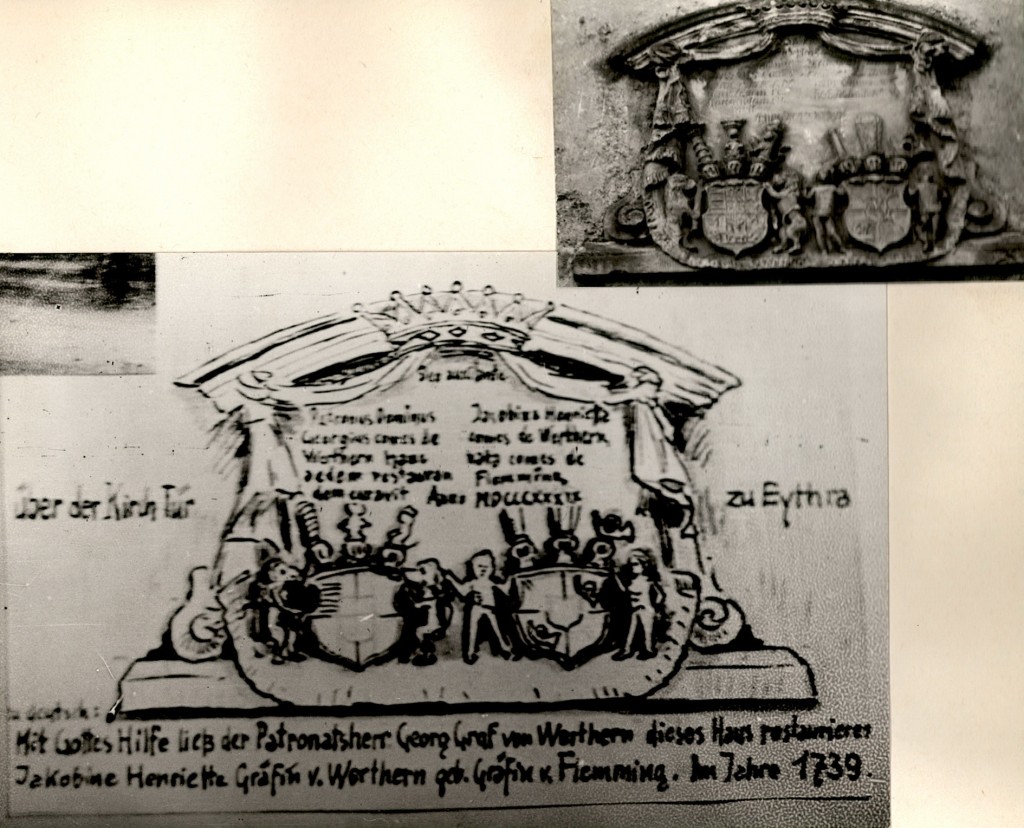 Deo auxiliante
Patronus Dominus
Georgius comes de
Werthern hanc
aedem restauran
dem curavit
Jacobina Henriette
comes de Werthern,
nata comes de
Flemming,
Anno MDCCXXXIX
über der Kirch Tür
zu Eythra
deutsch:
Mit Gottes Hilfe ließ der Patronatsherr Georg Graf von Werthern dieses Haus restaurieren
Jakobine Henriette Gräfin v. Werthern geb. Gräfin v. Flemming. Im Jahre 1739.